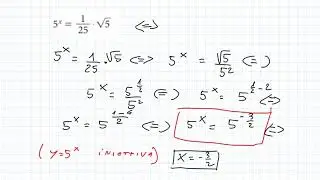 5^x = 1/25 · √5 <=>
5^x = 1/25 · √5 <=> 5^x = √5/5^2 <=>
5^x = 5^(1/2)/5^2 <=> 5^x = 5^(1/2-2) <=>
5^x = 5^((1-4)/2) <=> 5^x = 5^(-3/2) <=>
(y=5^x iniettiva) x = -3/2